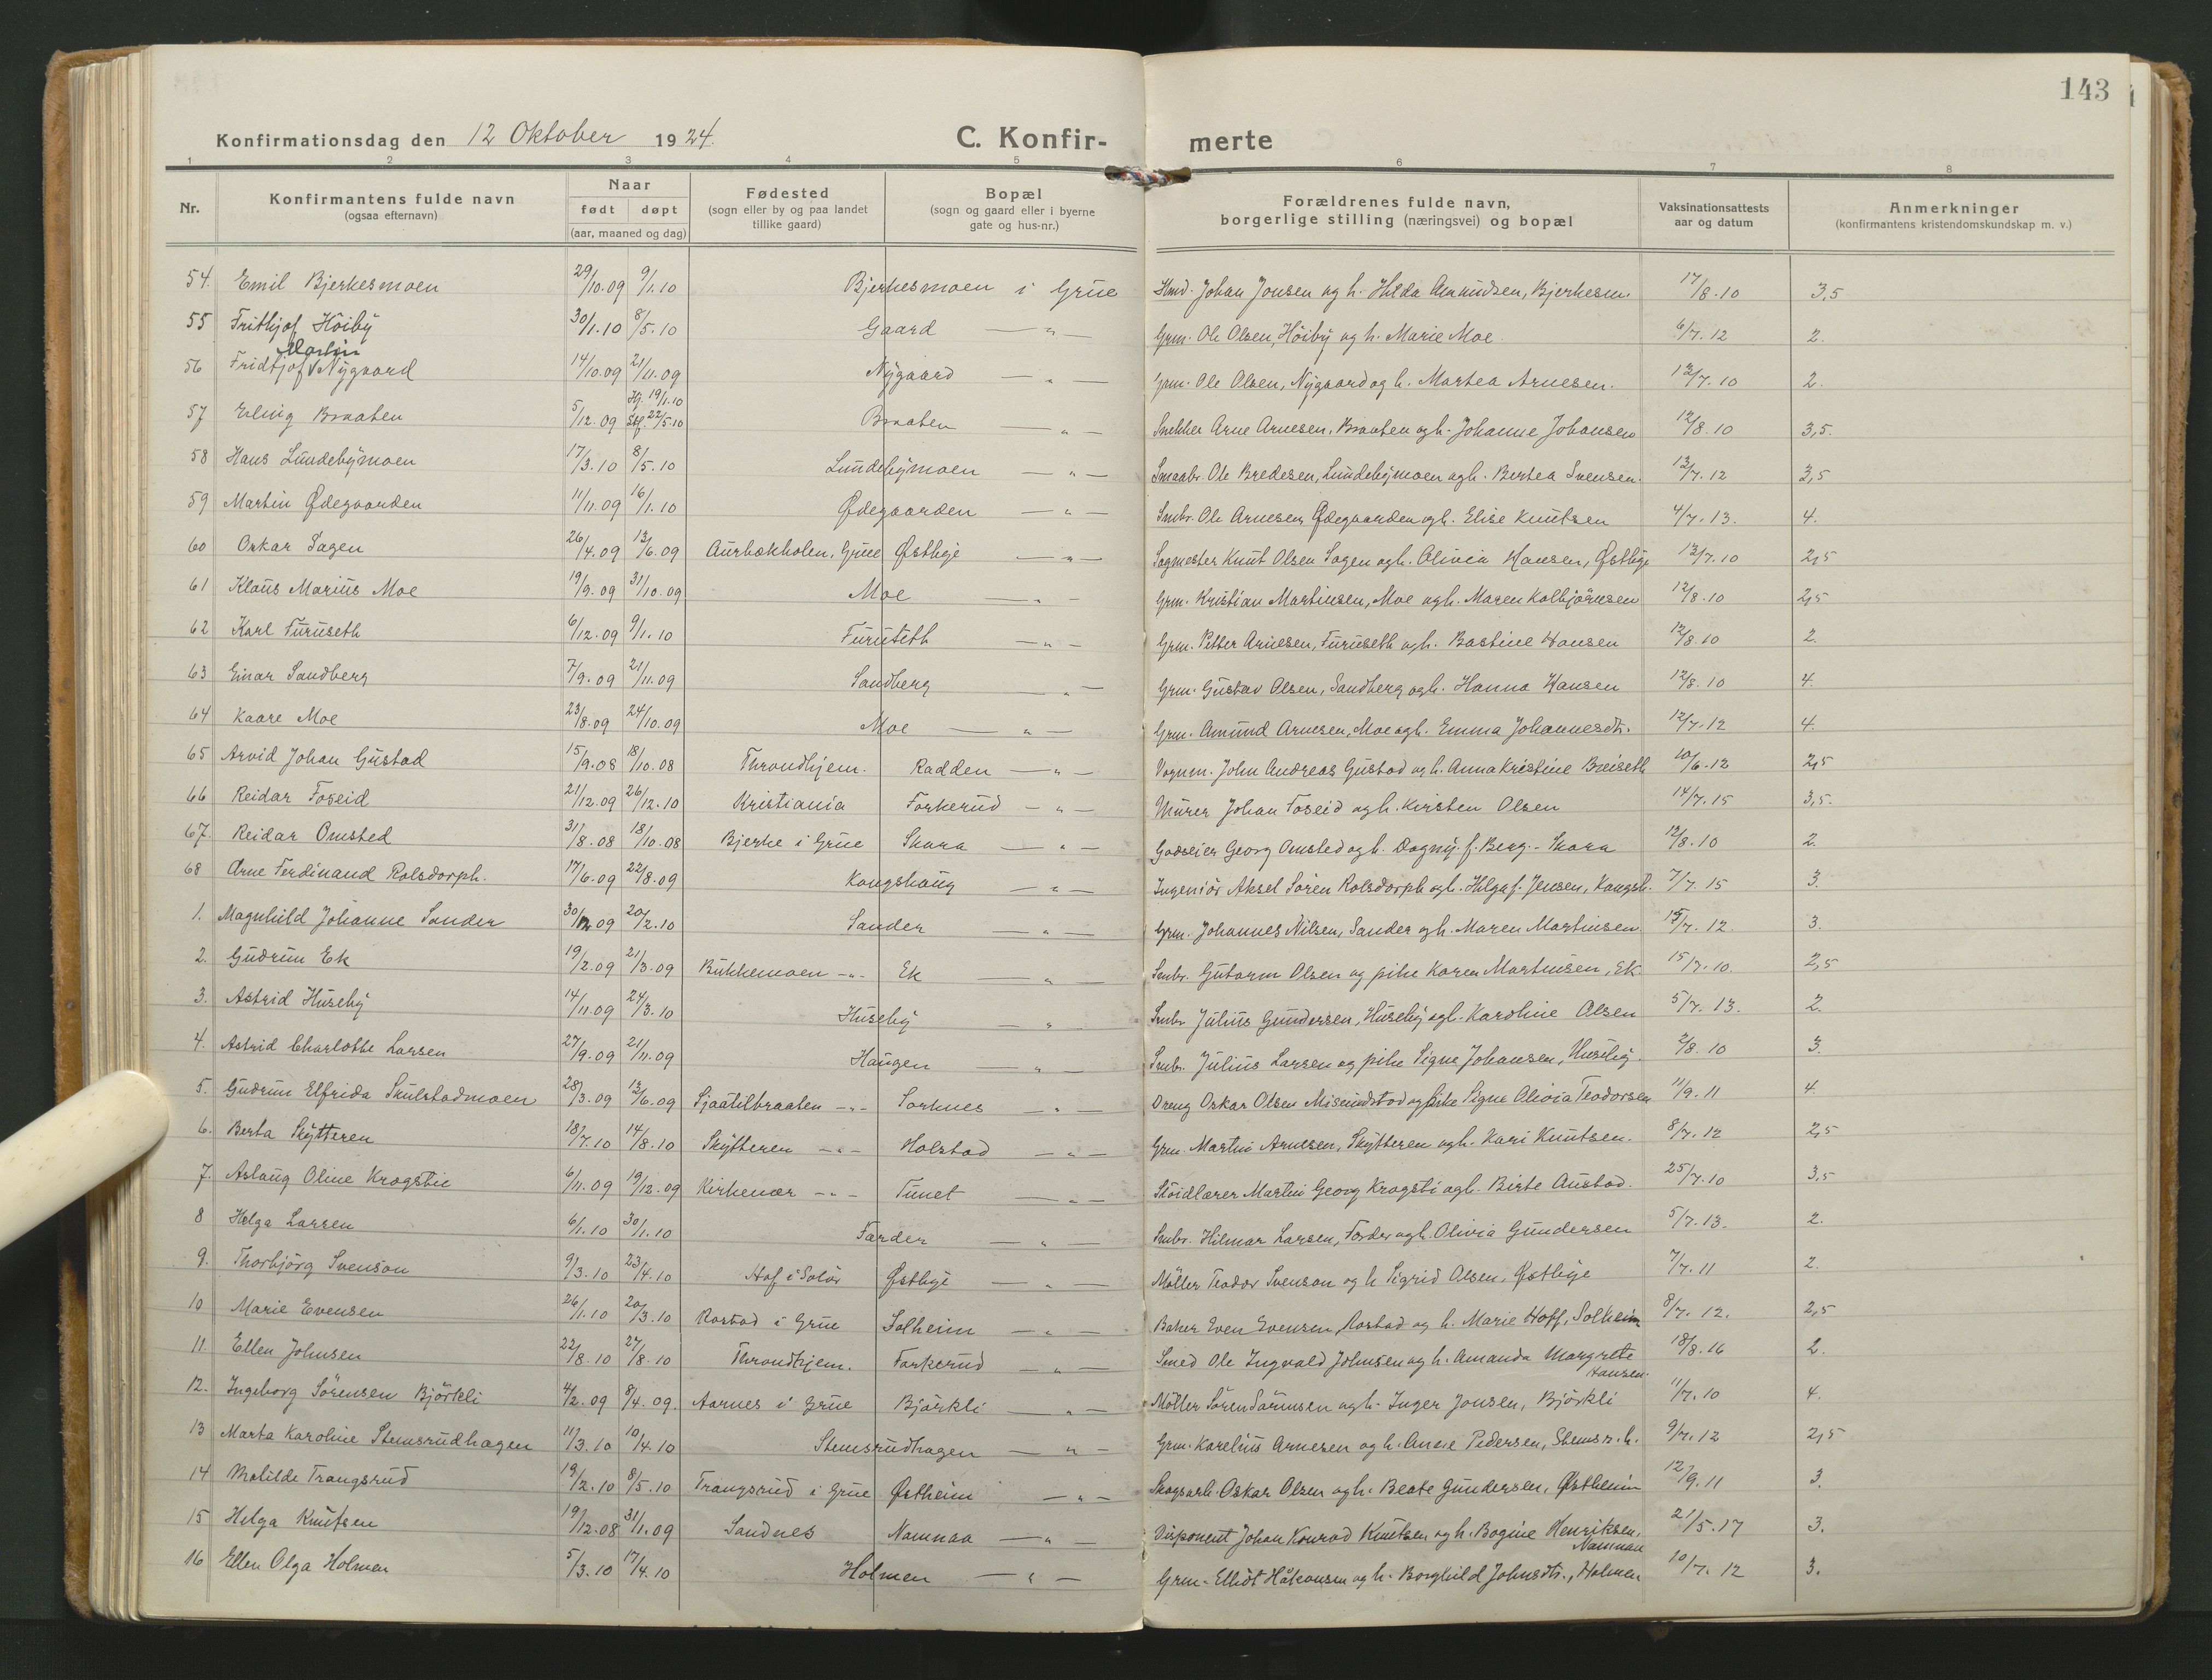 143
Konfirmationsdag den 12 Oktober 1924. C. Konfir- merte
1 2 3 4 5 6 7 8
Nr. Konfirmantens fulde navn (ogsaa efternavn) Naar født døpt (aar, maaned og dag) Fødested (sogn eller by og paa landet tillike gaard) Bopæl (sogn og gaard eller i byerne gate og hus-nr.) Forældrenes fulde navn, borgerlige stilling (næringsvei) og bopæl Vaksinationsattests aar og datum Anmerkninger (konfirmantens kristendomskundskap m. v.)
54. Emil Bjerkesmoen 29/10.09 9/1.10 Bjerkesmoen i Grue Hmd. Johan Jonsen og h. Hilda Amundsen, Bjerkesm. 17/8.10 3,5
55 Frithjof Höiby 30/1.10 8/5.10 Gaard — " — Grm. Ole Olsen, Höiby og h. Marie Moe. 6/7.12 2.
Martin
56 Fridtjof Nygaard 14/10.09 21/11.09 Nygaard — " — Grm. Ole Olsen, Nygaard og h. Martea Arnesen. 12/7.10 2.
57 Erling Braaten 5/12.09 Hj. 19/1.10 Stf. 22/5.10 Braaten — " — Snekker Arne Arnesen, Braaten og h. Johanne Johansen 12/8.10 3,5.
58 Hans Lundebymoen 17/3.10 8/5.10 Lundebymoen — " — Smaabr. Ole Bredesen, Lundebymoen og h. Bertea Svensen. 12/7.12 3,5
59 Martin Ødegaarden 11/11.09 16/1.10 Ødegaarden — " — Smbr. Ole Arnesen Ødegaarden og h. Elise Knutsen 4/7.13. 4.
60 Oskar Sagen 26/4.09 13/6.09 Aurbekholen, Grue Østbye — " — Sagmester Knut Olsen Sagen og h. Olivia Hansen, Østbye 12/7.10 2,5
61 Klaus Marius Moe 19/9.09 31/10.09 Moe — " — Grm. Kristian Martinsen, Moe og h. Maren Kolbjörnsen 12/8.10 2,5
62 Karl Furuseth 6/12.09 9/1.10 Furuseth — " — Grm. Petter Arnesen, Furuseth og h. Bastine Hansen 12/8.10 2.
63 Einar Sandberg 7/9.09 21/11.09 Sandberg — " — Grm. Gustav Olsen, Sandberg og h. Hanna Hansen 12/8.10 4.
64 Kaare Moe 23/8.09 24/10.09 Moe — " — Grm. Amund Arnesen, Moe og h. Emma Johannesdtr. 12/7.12 4.
65 Arvid Johan Gustad 15/9.08 18/10.08 Throndhjem. Radden — " — Vognm. John Andreas Gustad og h. Anna Kristine Breiseth 10/6.12 2,5
66 Reidar Foseid 21/12.09 26/12.10 Kristiania Forkerud — " — Murer Johan Foseid og h. Kirsten Olsen 14/7.15 3,5.
67. Reidar Omsted 31/8.08 18/10.08 Bjerke i Grue Skara — " — Godseier Georg Omsted og h. Dagny f. Berg. - Skara 12/8.10 2.
68 Arne Ferdinand Rolsdorph. 17/6.09 22/8.09 Kongshaug — " — Ingeniör Aksel Sören Rolsdorph og h. Helga f. Jensen, Kongsh. 7/7.15 3.
1. Magnhild Johanne Sander 30/12.09 20/2.10 Sander — " — Grm. Johannes Nilsen, Sander og h. Maren Martinsen 15/7.12. 3.
2. Gudrun Ek 19/2.09 21/3.09 Bukkemoen -"- Ek — " — Smbr. Gutorm Olsen og pike Karen Martinsen, Ek. 15/7.10. 2,5
3. Astrid Huseby 14/11.09 24/3.10 Huseby — " — Smbr. Julius Gundersen, Huseby og h. Karoline Olsen 5/7.13. 2.
4. Astrid Charlotte Larsen 27/9.09 21/11.09 Haugen — " — Smbr. Julius Larsen og pike Signe Johansen, Huseby. 2/8.10 3.
5. Gudrun Elfrida Skulstadmoen 28/3.09 13/6.09 Sjaatilbraaten -"- Sorknes — " — Dreng Oskar Olsen Misundstad og pike Signe Olivia Teodorsen 11/9.11 4.
6. Berta Skytteren 18/7.10 14/8.10 Skytteren -"- Holstad — " — Grm. Martin Arnesen, Skytteren og h. Kari Knutsen. 8/7.12 2,5
7. Aslaug Oline Krogsti 6/11.09 19/12.09 Kirkenær -"- Tunet — " — Slöidlærer Martin Georg Krogsti og h. Birte Austad. 25/7.10 3,5
8 Helga Larsen 6/1.10 30/1.10 Farder — " — Smbr. Hilmar Larsen, Farder og h. Olivia Gundersen 5/7.13. 2.
9. Thorbjörg Svenson 9/3.10 23/4.10 Hof i Solör Østbye — " — Möller Teodor Svenson og h. Sigrid Olsen, Østbye 7/7.11 2.
10 Marie Evensen 26/1.10 20/3.10 Rostad i Grue Solheim — " — Baker Even Evensen, Rostad og h. Marie Hoff, Solheim 8/7.12. 2,5
11. Ellen Johnsen 22/8.10 27/8.10 Throndhjem. Forkerud — " — Smed Ole Ingvald Johnsen og h. Amanda Margrete Hansen. 18/8.16 2.
12. Ingeborg Sörensen Björkli 4/2.09 8/4.09. Aarnes i Grue Björkli — " — Möller Sören Sörensen og h. Inger Jonsen, Björkli 11/7.10 4.
13 Marta Karoline Stemsrudhagen 11/3.10 10/4.10 Stemsrudhagen — " — Grm. Karelius Arnesen og h. Anne Pedersen, Stemsr.h. 9/7.12 2,5
14 Matilde Trangsrud 19/2.10 8/5.10 Trangsrud i Grue Østheim — " — Skogsarb. Oskar Olsen og h. Beate Gundersen, Østheim 12/9.11 3.
15 Helga Knutsen 19/12.08 31/1.09 Sandnes Namnaa — " — Disponent Johan Konrad Knutsen og h. Bogine Henriksen, Namnaa 21/5.17 3.
16 Ellen Olga Holmen 5/3.10 17/4.10 Holmen — " — Grm. Ellidt Håkonsen og h. Borghild Johnsdtr., Holmen 10/7.12 3.